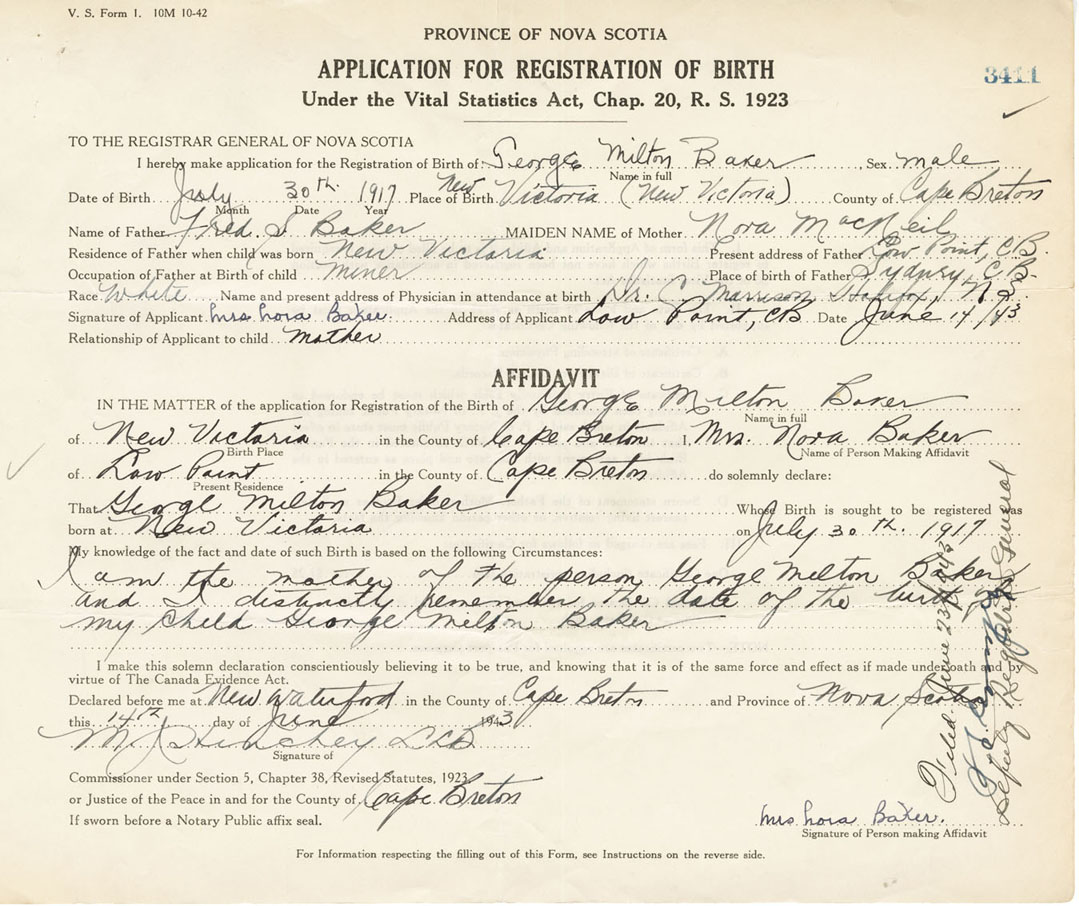 V. S. Form 1. 10M 10-42
PROVINCE OF NOVA SCOTIA
APPLICATION FOR REGISTRATION OF BIRTH
3411
Under the Vital Statistics Act, Chap. 20, R. S. 1923
TO THE REGISTRAR GENERAL OF NOVA SCOTIA
I hereby make application for the Registration of Birth of: George Milton Baker Sex male
Name in full
Date of Birth July 30th. 1917 Place of Birth New Victoria (New Victoria) County of Cape Breton
Month Date Year
Name of Father Fred. J Baker MAIDEN NAME of Mother Nora MacNeil
Residence of Father when child was born New Victoria Present address of Father Low Point, C.B.
Occupation of Father at Birth of child miner Place of birth of Father Sydney, C.B.
Race White Name and present address of Physician in attendance at birth Dr. C. Morrison Halifax, N.S.
Signature of Applicant Mrs Nora Baker Address of Applicant Low Point, CB Date June 14/43
Relationship of Applicant to child mother
AFFIDAVIT
IN THE MATTER of the application for Registration of the Birth of George Milton Baker
Name in full
of New Victoria in the County of Cape Breton I, Mrs. Nora Baker
Birth Place Name of Person Making Affidavit
of Low Point in the County of Cape Breton do solemnly declare:
Present Residence
That George Milton Baker Whose Birth is sought to be registered was
born at New Victoria on July 30th. 1917
My knowledge of the fact and date of such Birth is based on the following Circumstances:
I am the mother of the person George Milton Baker
and I distinctly remember the date of the birth of
my child George Milton Baker
I make this solemn declaration conscientiously believing it to be true, and knowing that it is of the same force and effect as if made under oath and by
virtue of The Canada Evidence Act.
Declared before me at New Waterford in the County of Cape Breton and Province of Nova Scotia
this 14th day of June 1943
M J Hinchey LLB
Signature of
Commissioner under Section 5, Chapter 38, Revised Statutes, 1923
or Justice of the Peace in and for the County of Cape Breton
If sworn before a Notary Public affix seal.
Mrs Nora Baker.
Signature of Person making Affidavit
For Information respecting the filling out of this Form, see Instructions on the reverse side.
Filed June 23 1943
Deputy Registrar General